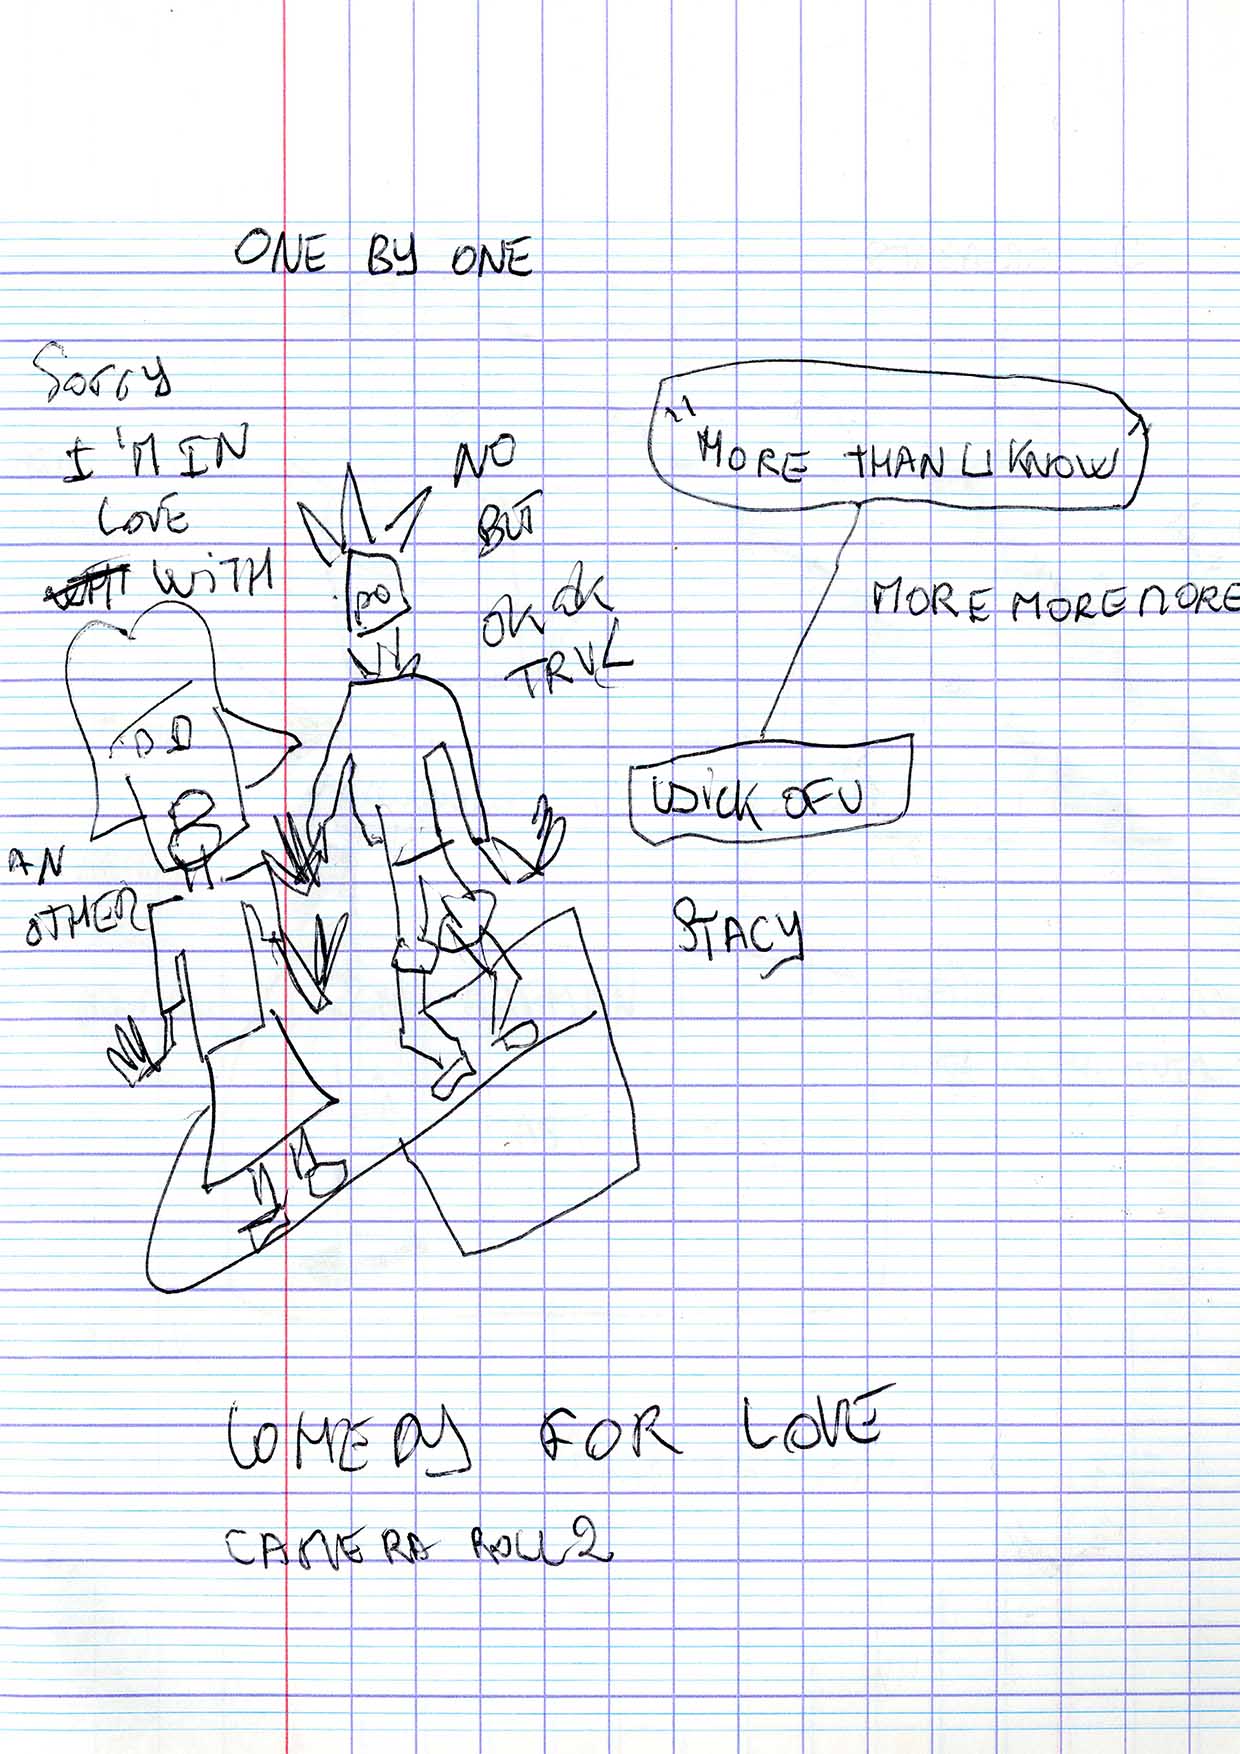 ONE BY ONE
Sorry
I'M IN
LOVE
WITH
AN
OTHER
NO
BUT
OK OK
"MORE THAN U KNOW"
MORE MORE MORE
OF U
STACY
COMEDY FOR LOVE
CAMERA ROLL 2